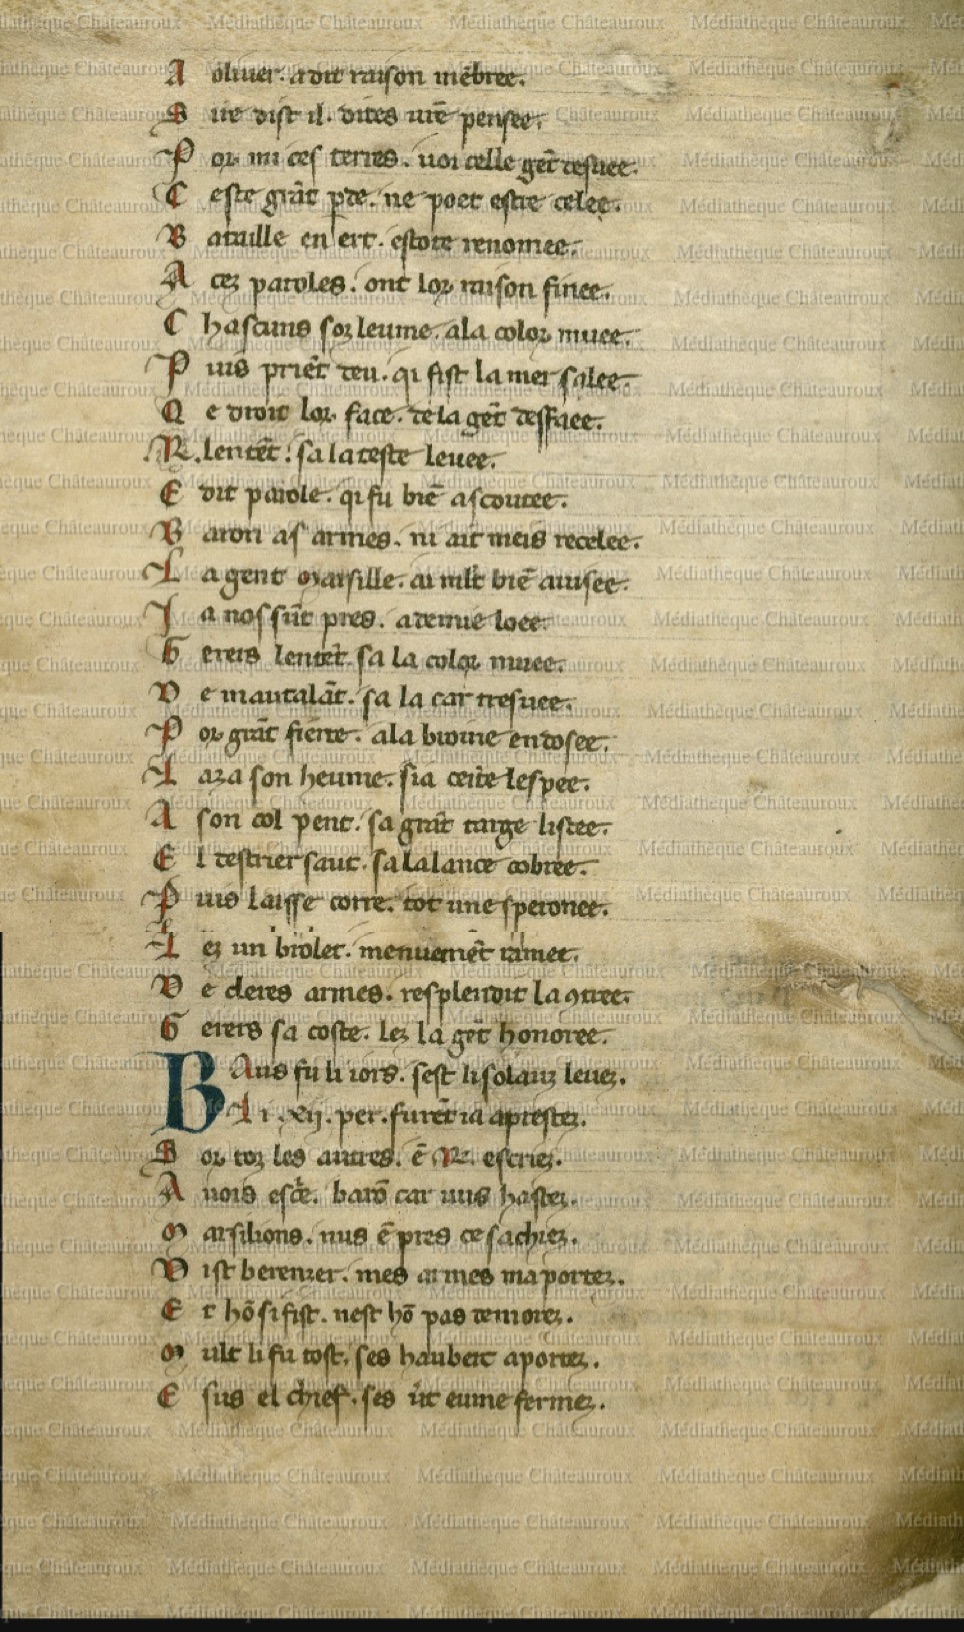 A oliuer. a dit raison mēbree.
S ire dist il. dites urē pensee.
P or mi ces terres. uoi celle gēt desuee.
C este grāt pde. ne poet estre celee.
B ataille en ert. estote renomee.
A cez paroles. ont lor raison finee.
C hascuns soz leume. a la color muee.
P uis priēt deu. qi fist la mer salee.
Q e droit lor face. de la gēt desfaee.
.R. lentēt. sa la teste leuee.
E dit parole. qi fu biē ascoutee.
B aron as armes. ni ait meis recelee.
L a gent marsille. ai mlt biē auisee.
I a nos sūt pres. a demie loee.
G erers lentēt sa la color muee.
D e mautalāt. sa la car tresuee.
P or grāt fierte. a la broine endosee.
L aza son heume. si a ceite lespee.
A son col pent. sa grāt targe listee.
E l destrier saut. sa la lance cobree.
P uis laisse corre. tot une speronee.
L ez un brolet. menuemēt ramee.
D e cleres armes. resplendit la 9tree.
G erers sa coste. lez la gēt honoree.
B Aus fu li iors. sest li solauz leuez.
L i. xij. per. furēt ia aprestez.
S or toz les autres. ē R. escriez.
A uois esc̄e. barō car uus hastez.
M arsilions. nus ē pres ce sachiez.
D ist berenzer. mes armes maportez.
E t hō si fist. nest hō pas demorez.
M ult li fu tost. ses hauberc aportez.
E sus el chief. ses ūt eume fermez.
Médiathèque Châteauroux